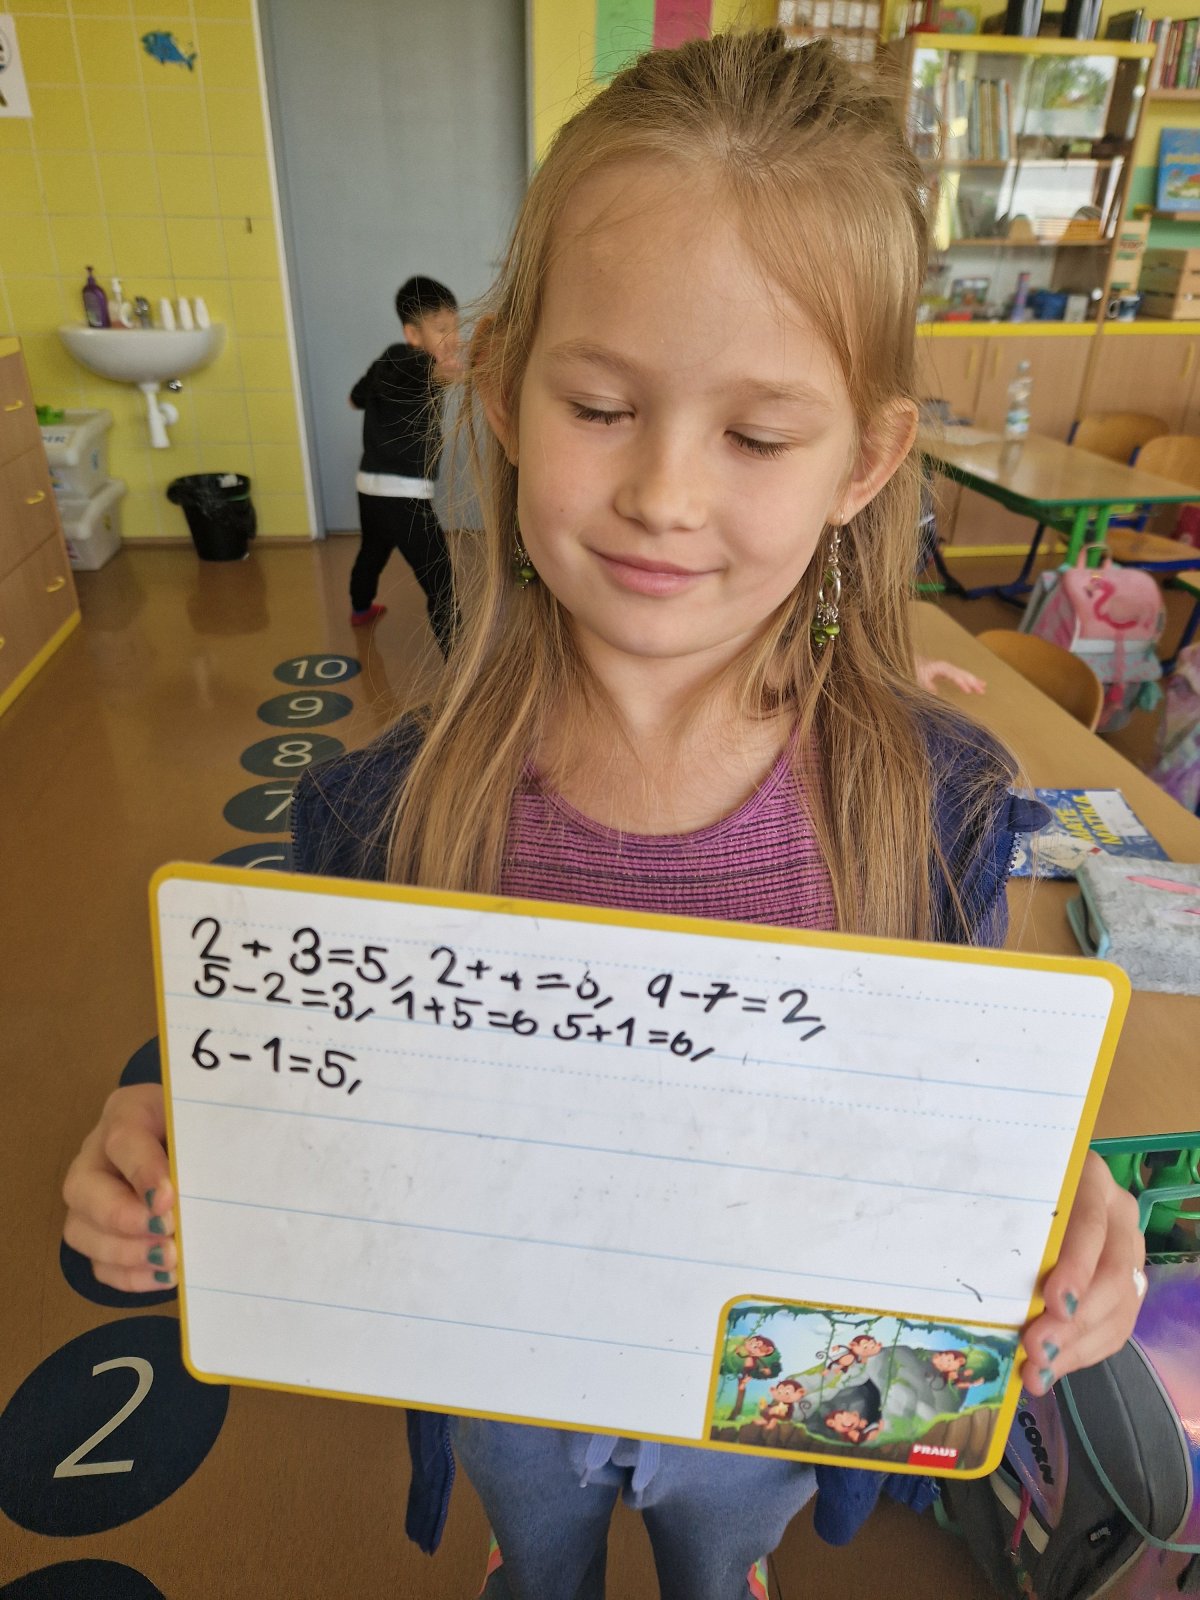 10
9
8
7
6
2 + 3=5, 2+4=6, 9-7=2,
5-2=3, 1+5=6 5+1=6,
6-1=5,
2
MATE
MATIKA
FRAUS
CORN